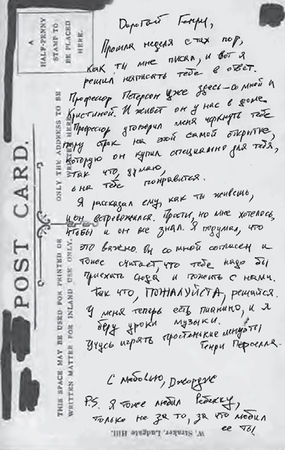 Дорогой Генри,
Прошла неделя с тех пор,
как ты мне писал, и вот я
решил написать тебе в ответ.
Профессор Петерсон уже здесь – со мной и
Кристиной. И живет он у нас в доме.
Профессор уговорил меня черкнуть тебе
пару строк на этой самой открытке,
которую он купил специально для тебя,
так что, думаю,
она тебе понравится.
Я рассказал ему, как ты живешь,
и он встревожился. Прости, но мне хотелось,
чтобы и он же знал. Я подумал, что
это важно. Он со мной согласен и
тоже считает что тебе надо бы
приехать сюда и пожить с нами.
Так что, ПОЖАЛУЙСТА, решайся.
У меня теперь есть пианино, и я
беру уроки музыки.
Учусь играть простенькие менуэты
Генри Перселла.
С любовью, Джордж
P.S. Я тоже любил Ребекку,
только не за то, за что любил
ее ты
A
HALF-PENNY
STAMP TO
BE PLACED
HERE.
POST CARD.
ONLY THE ADDRESS TO BE
WRITTEN HERE.
THIS SPACE MAY BE USED FOR PRINTED OR
WRITTEN MATTER FOR INLAND USE ONLY.
W. Straker, Ludgate Hill.